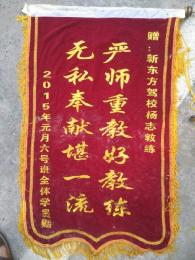 赠:新东方驾校杨志教练
严师重教好教练
无私奉献堪一流
2015年元月六号班全体学员赠